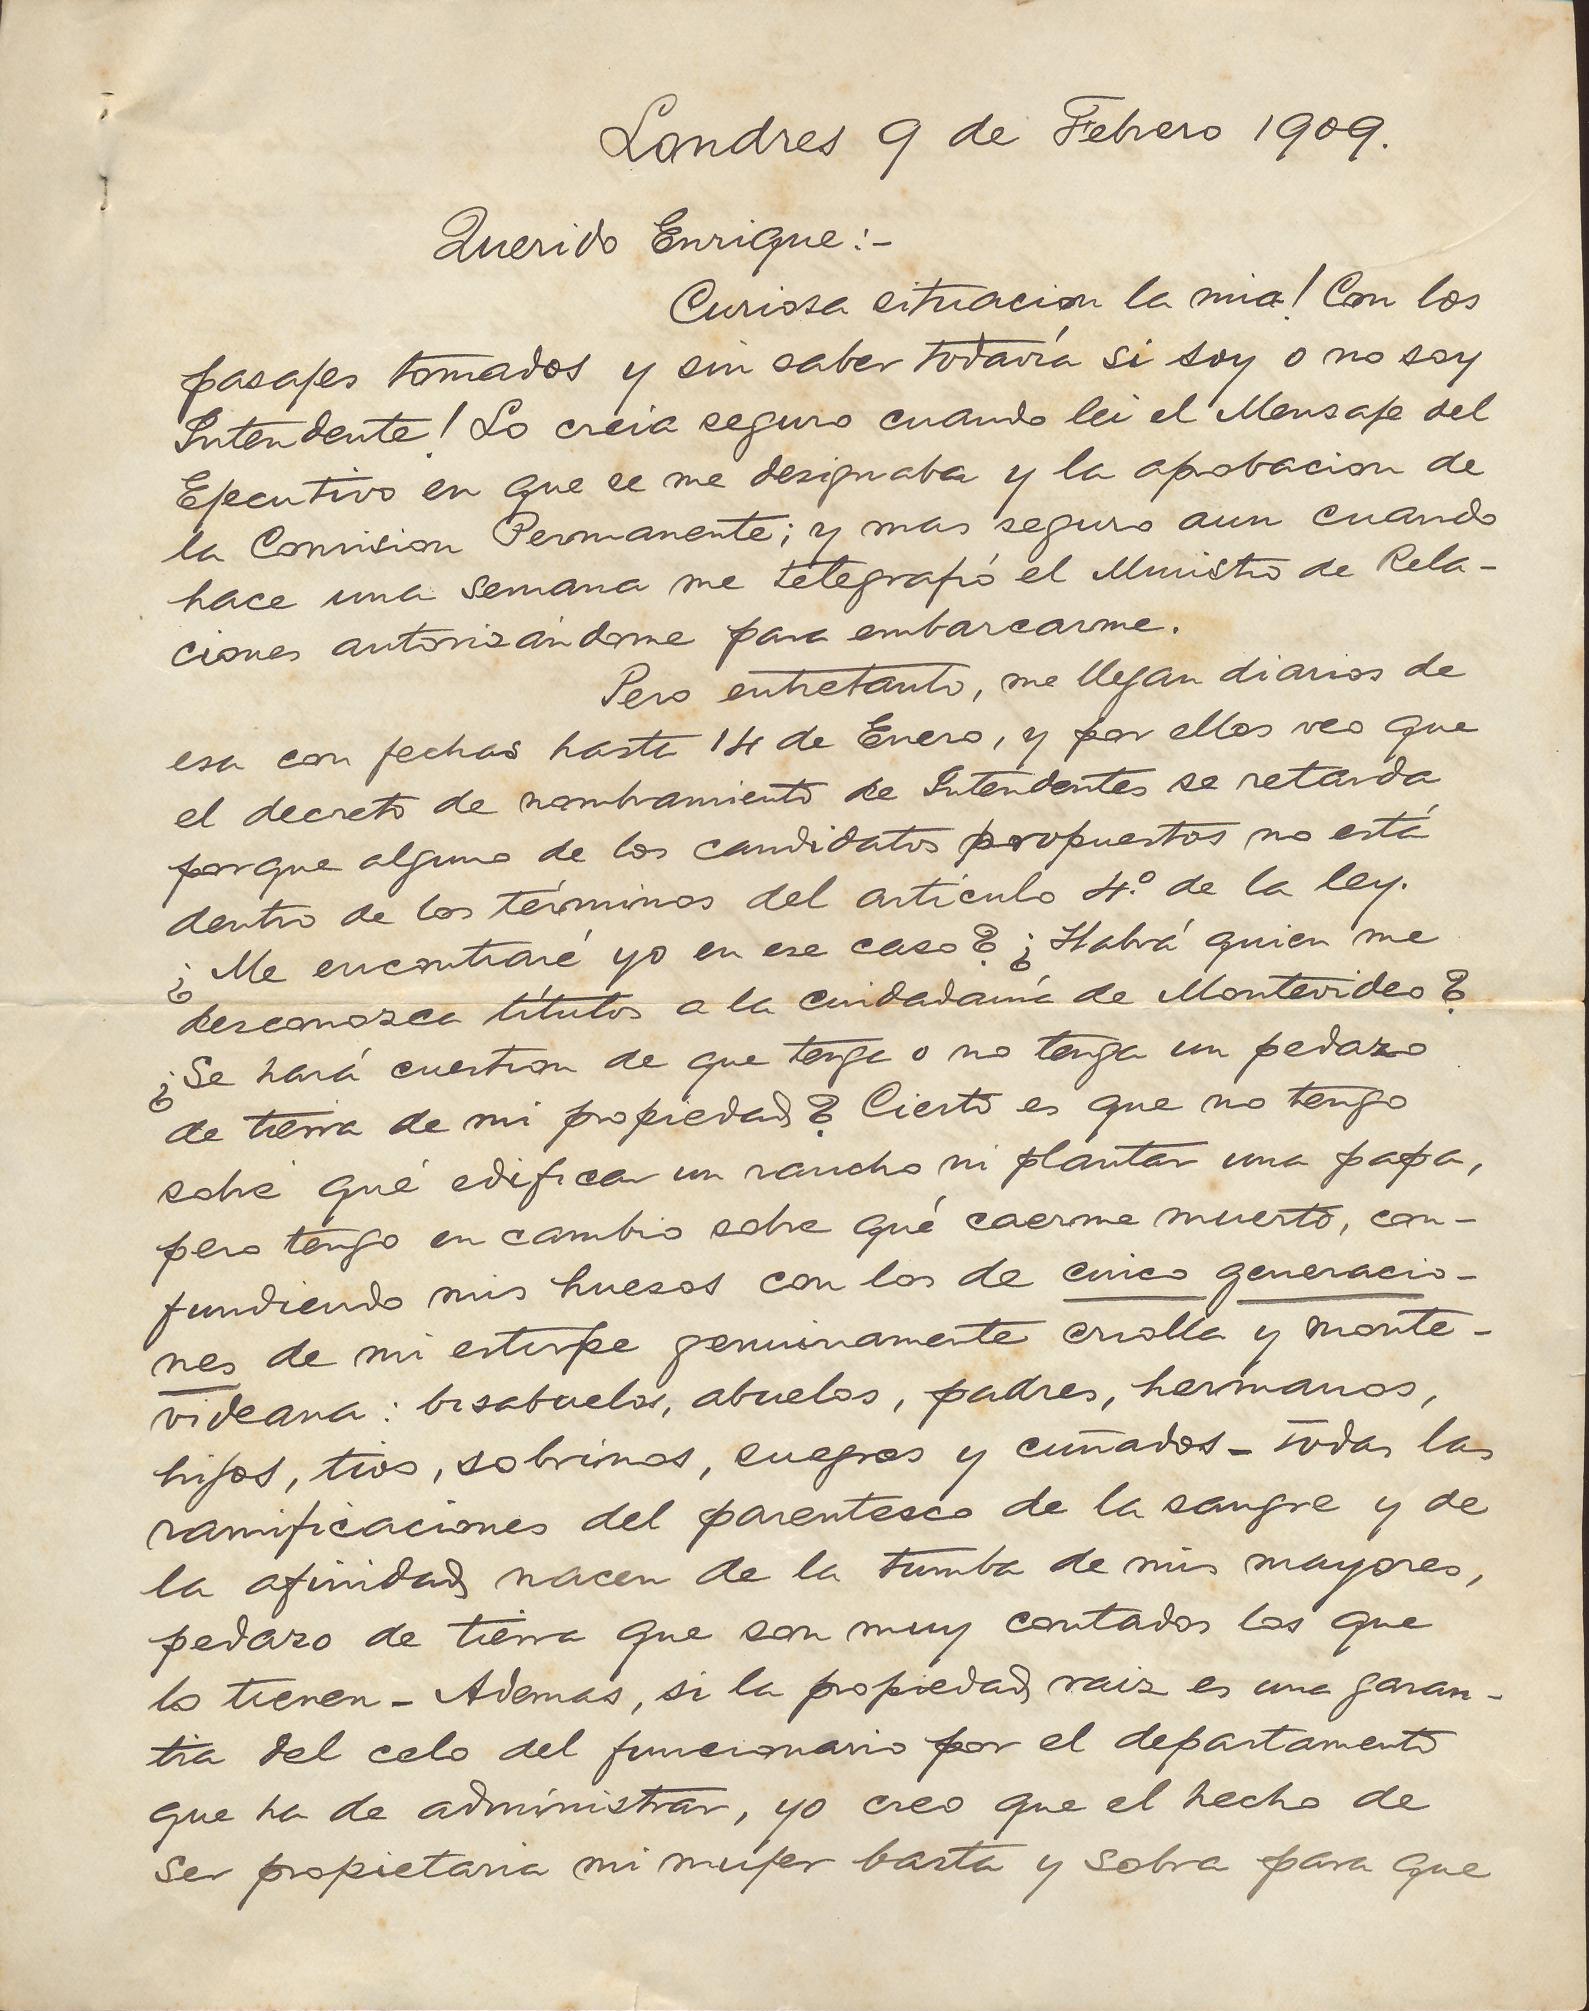 Londres 9 de Febrero 1909.
Querido Enrique:-
Curiosa situacion la mia! Con los
pasajes tomados y sin saber todavía si soy o no soy
Intendente! Lo creia seguro cuando lei el Mensaje del
Ejecutivo en que se me designaba y la aprobacion de
la Comision Permanente; y mas seguro aun cuando
hace una semana me telegrafió el Ministro de Rela-
ciones autorizándome para embarcarme.
Pero entretanto, me llegan diarios de
esa con fechas hasta 14 de Enero, y por ellos veo que
el decreto de nombramiento de Intendentes se retarda
porque alguno de los candidatos propuestos no está
dentro de los términos del artículo 4.º de la ley.
¿Me encontraré yo en ese caso? ¿Habrá quien me
desconozca títulos a la cuidadanía de Montevideo?
¿Se hará cuestion de que tenga o no tenga un pedazo
de tierra de mi propiedad? Cierto es que no tengo
sobre qué edificar un rancho ni plantar una papa,
pero tengo en cambio sobre qué caerme muerto, con-
fundiendo mis huesos con los de cinco generacio-
nes de mi estirpe genuinamente criolla y monte-
videana: bisabuelos, abuelos, padres, hermanos,
hijos, tios, sobrinos, suegros y cuñados - todas las
ramificaciones del parentesco de la sangre y de
la afinidad, nacen de la tumba de mis mayores,
pedazo de tierra que son muy contados los que
lo tienen - Ademas, si la propiedad raiz es una garan-
tia del celo del funcionario por el departamento
que ha de administrar, yo creo que el hecho de
ser propietaria mi mujer basta y sobra para que